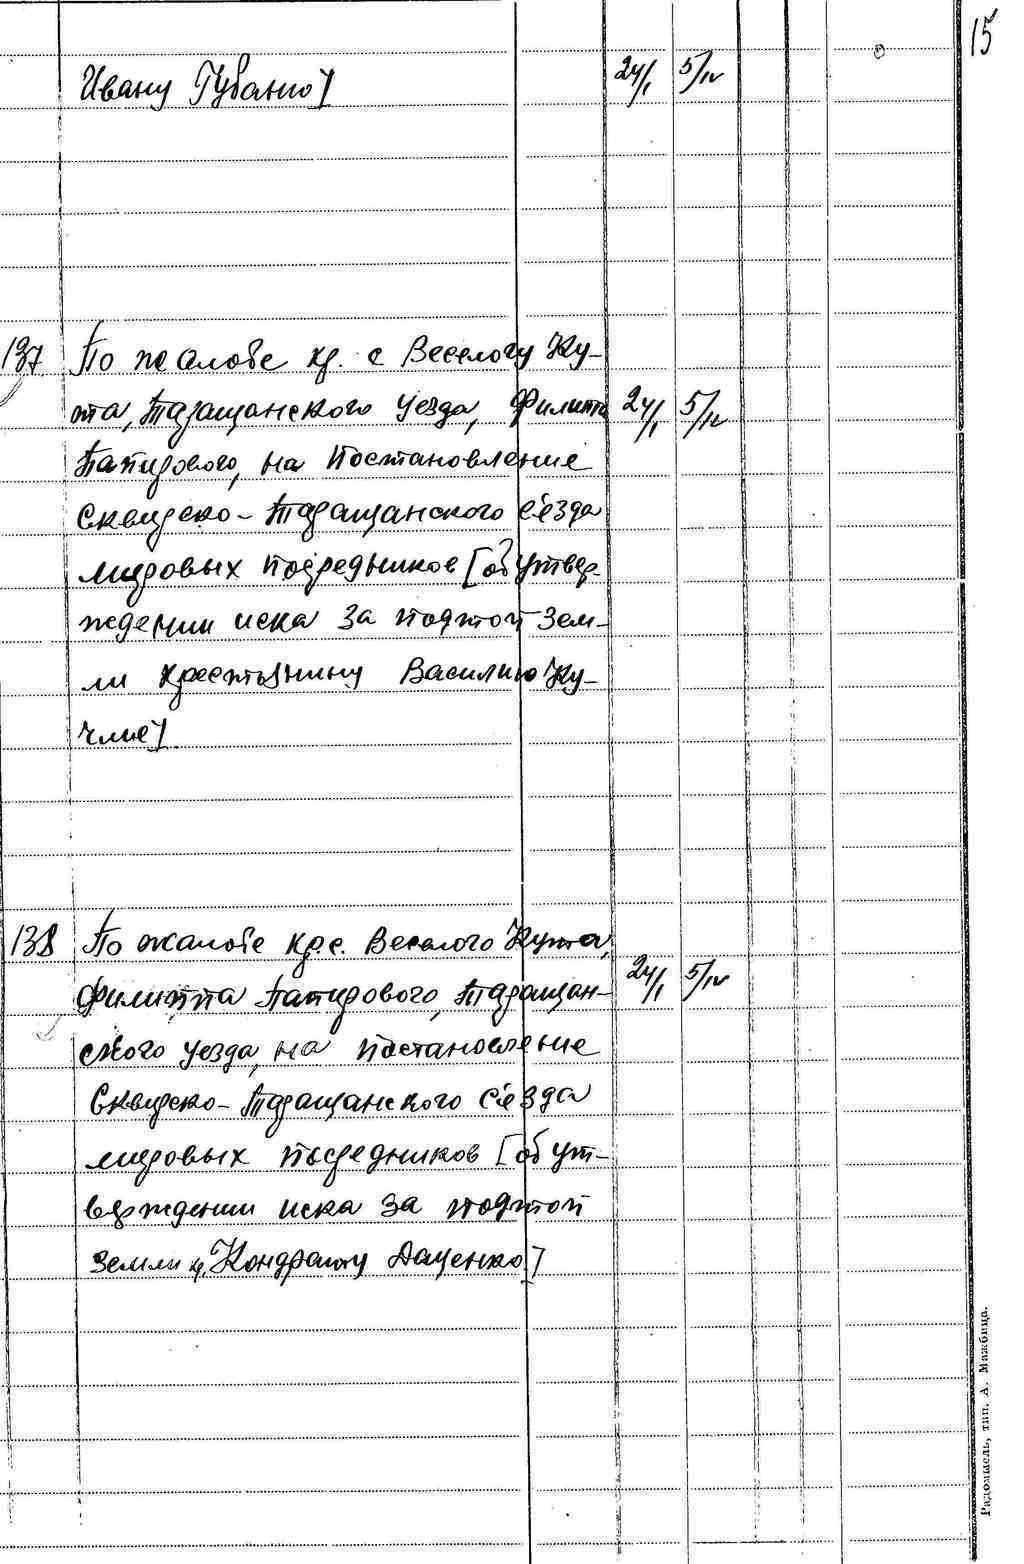 15
Ивану Губаню] 24/I 5/IV
137 По жалобе кр. с Веселогу Ку-
та, Таращанского уезда, Филиппа 24/I 5/IV
Папирового, на постановление
Сквирско-Таращанского съезда
мировых посредников [об утвер-
ждении иска за подтоп зем-
ли крестьянину Василию Ку-
чме]
138 По жалобе кр. с. Веселого Кута,
Филиппа Папирового, Таращан- 24/I 5/IV
ского уезда, на постановление
Сквирско-Таращанского съезда
мировых посредников [об ут-
верждении иска за подтоп
земли кр. Кондрату Даценко]
Радомысль, тип. А. Мажбица.